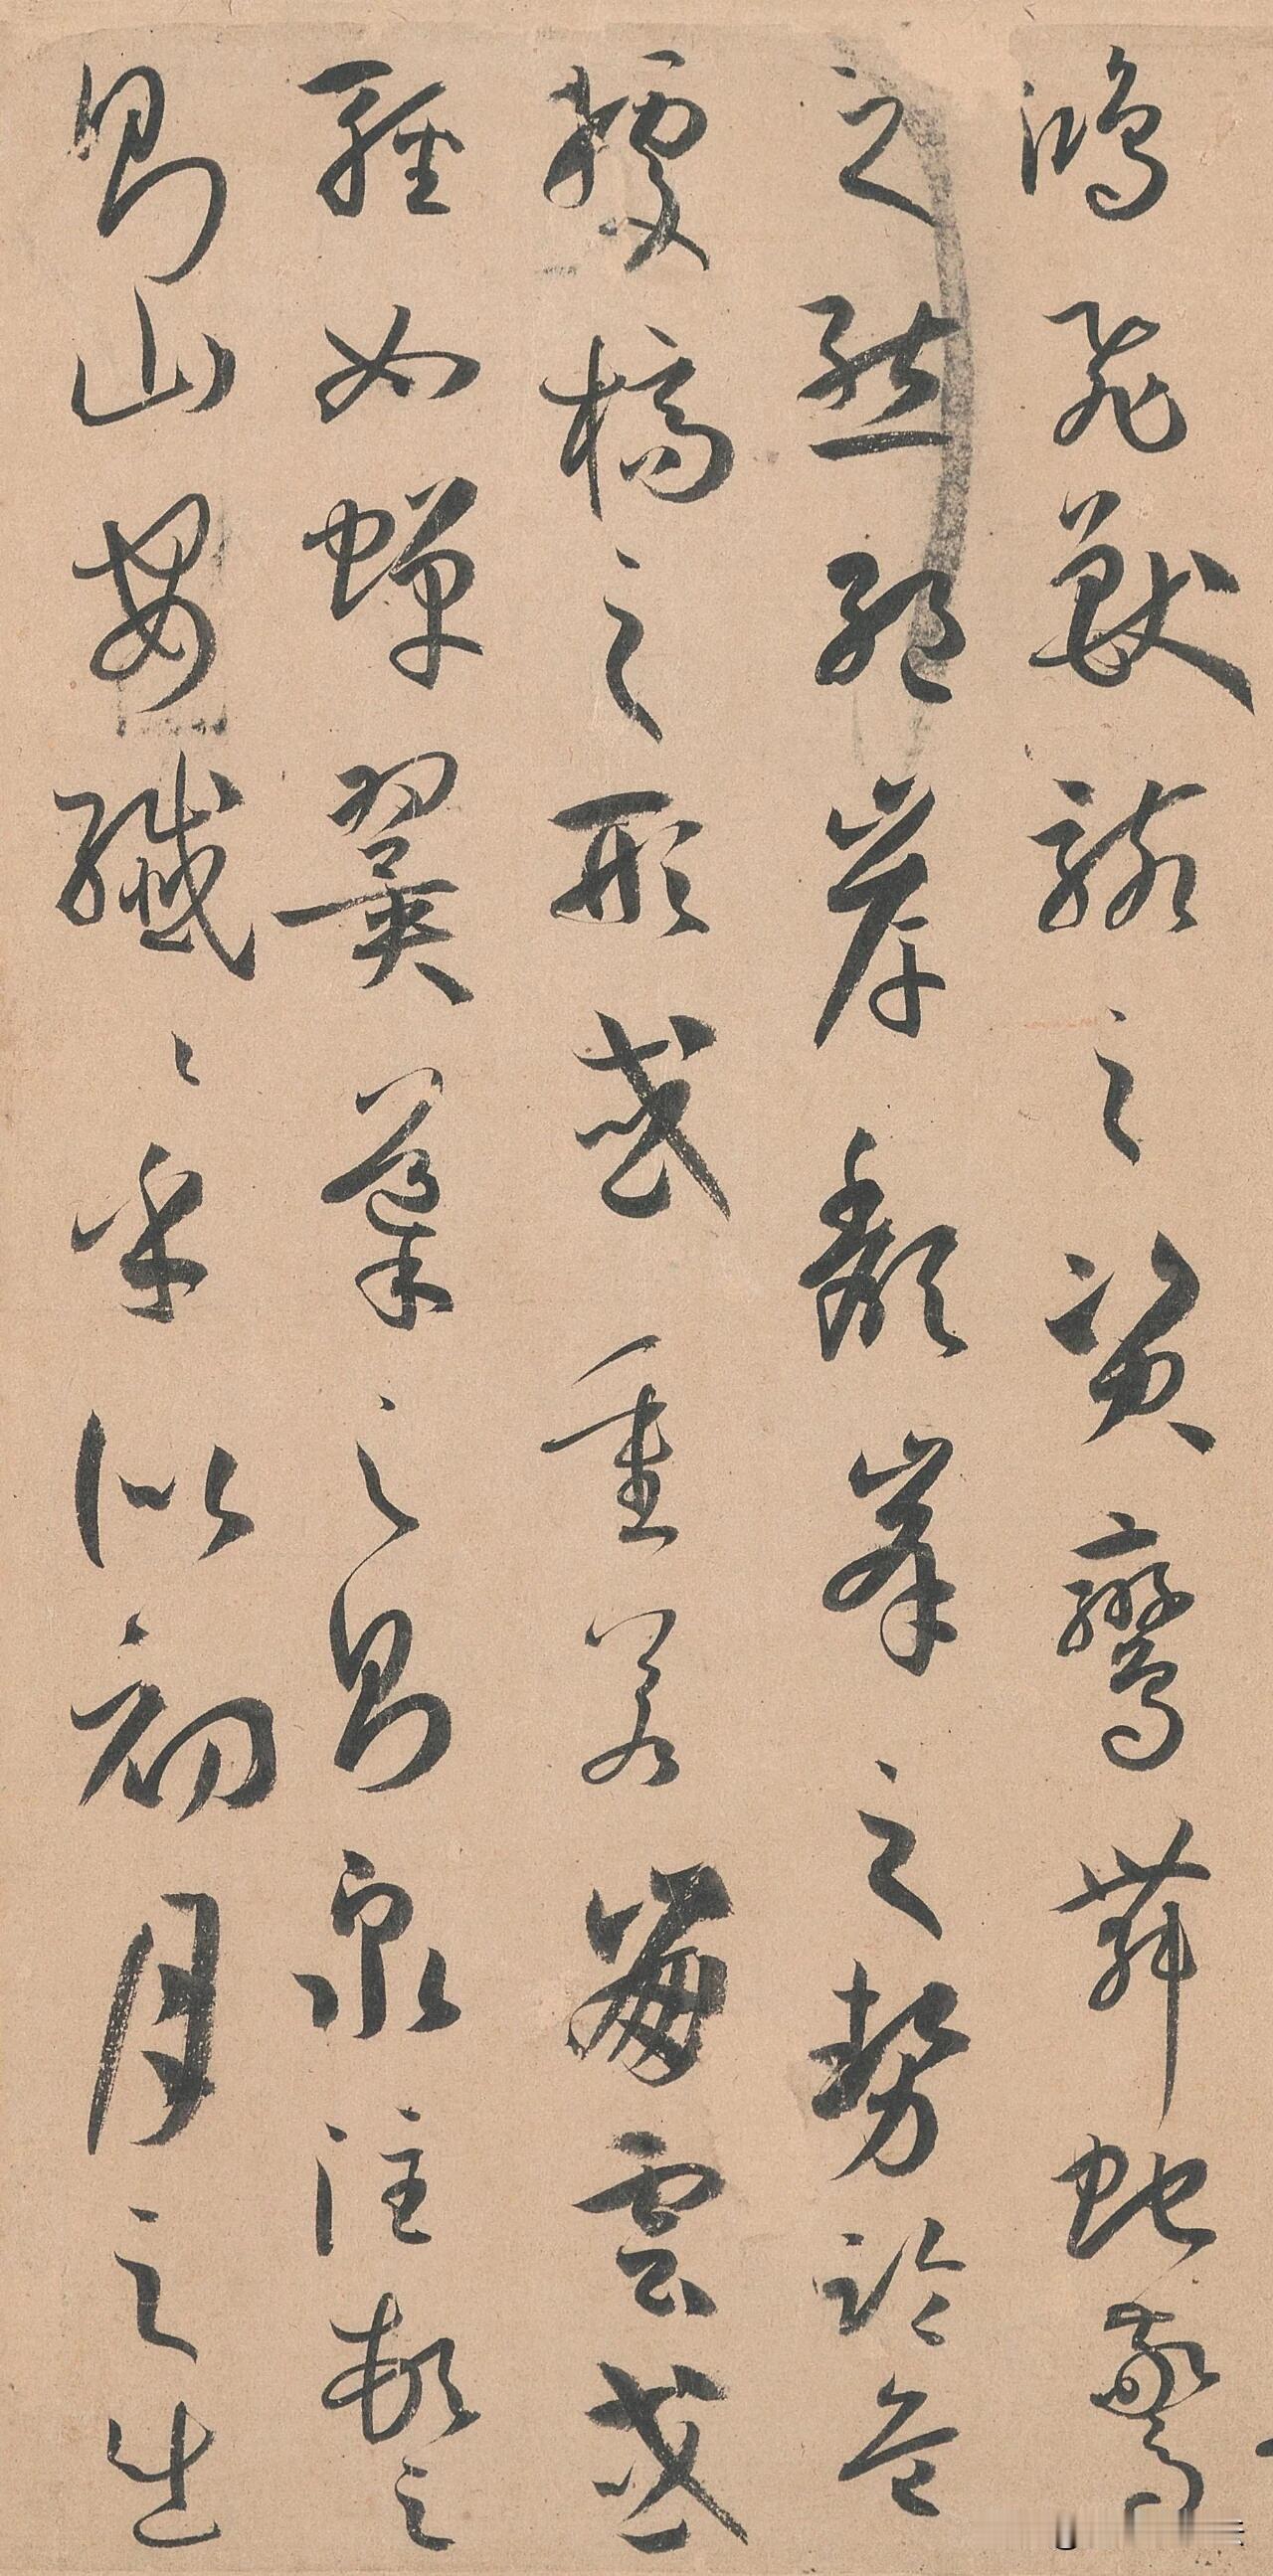 鴻飛獸駭之資鸞舞蛇驚
之態絕岸頹峯之勢臨危
據槁之形或重若崩雲或
輕如蟬翼導之則泉注頓之
則山安纖〻乎似初月之出